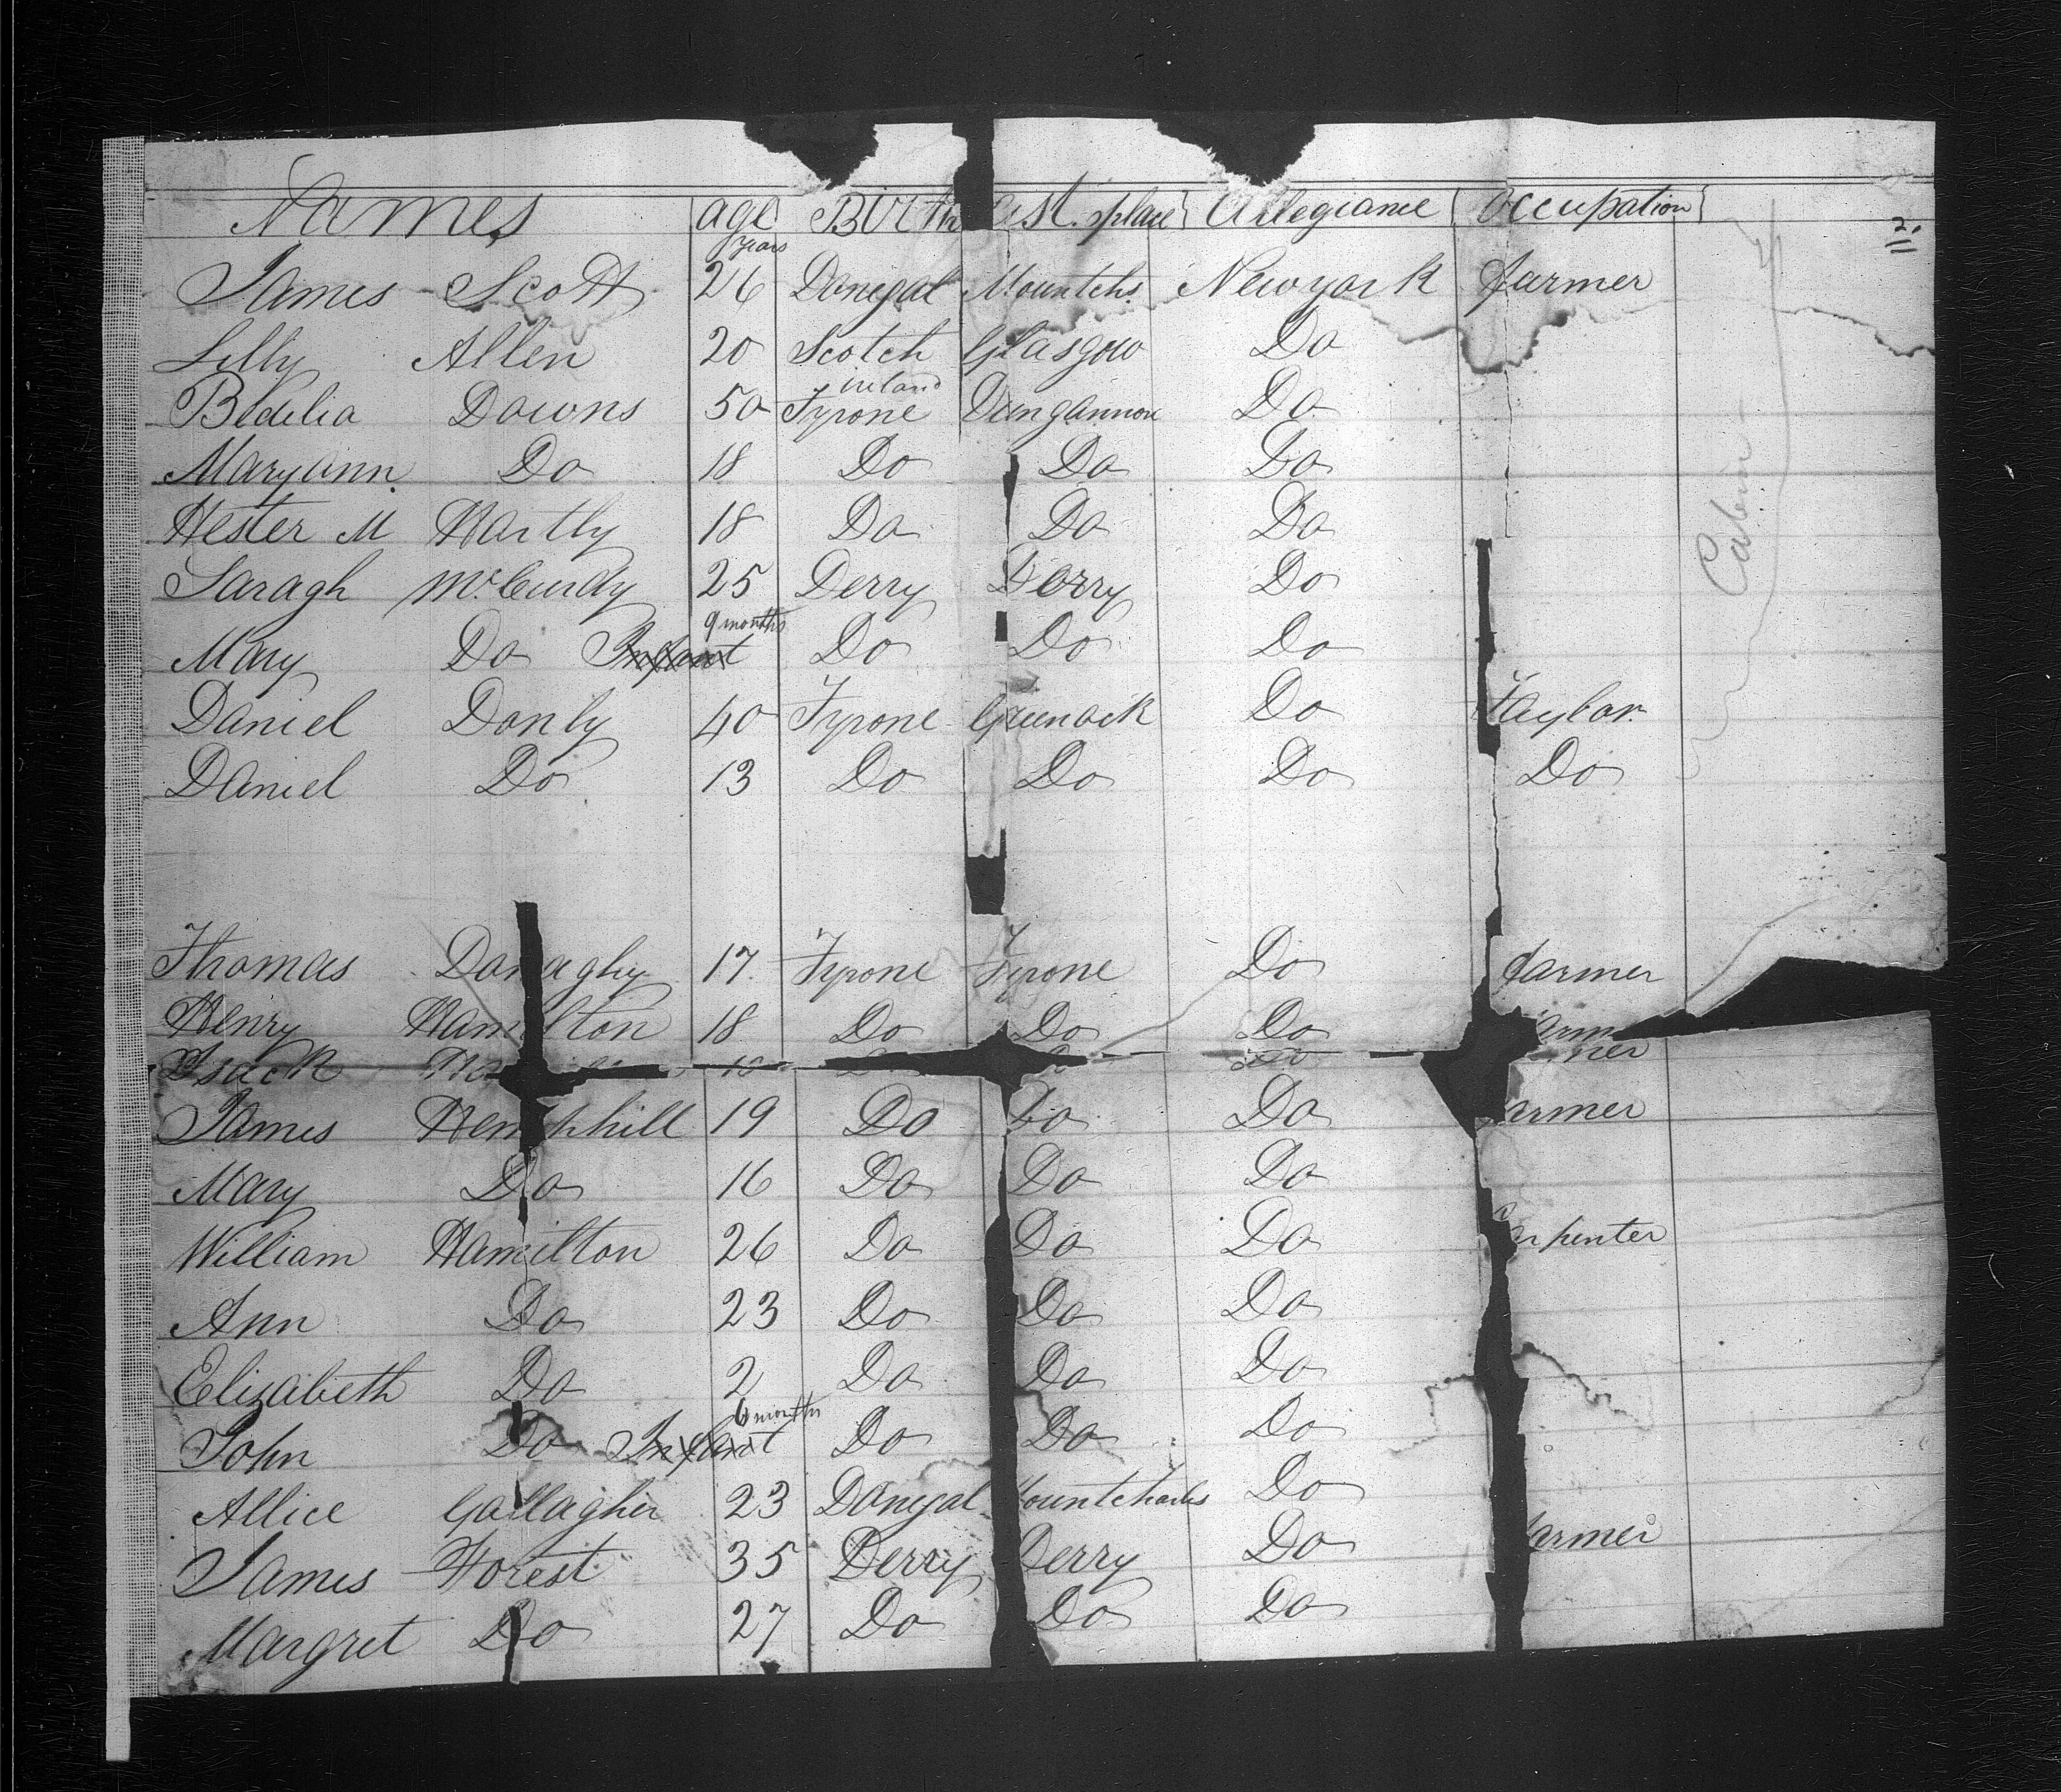 Names age Birth Last place Allegiance Occupation
2.
years
James Scott 26 Donegal Mountchs. New york farmer
Lilly Allen 20 Scotch Glasgow Do
Ireland
Bedelia Downs 50 Tyrone Dungannon Do
Maryann Do 18 Do Do Do
Hester M Hartly 18 Do Do Do
Saragh McCurdy 25 Derry Derry Do
9 months
Mary Do Infant Do Do Do
Daniel Donly 40 Tyrone Greenock Do Taylor
Daniel Do 13 Do Do Do Do
Cabin
Thomas Donaghy 17 Tyrone Tyrone Do farmer
Henry Hamilton 18 Do Do Do farm
Isack Do ner
James Hemphill 19 Do Do Do armer
Mary Do 16 Do Do Do
William Hamilton 26 Do Do Do arpenter
Ann Do 23 Do Do Do
Elizabeth Do 2 Do Do Do
6 months
John Do Infant Do Do Do
Allice Gallagher 23 Donegal ountcharles Do
James Forest 35 Derry Derry Do armer
Margret Do 27 Do Do Do